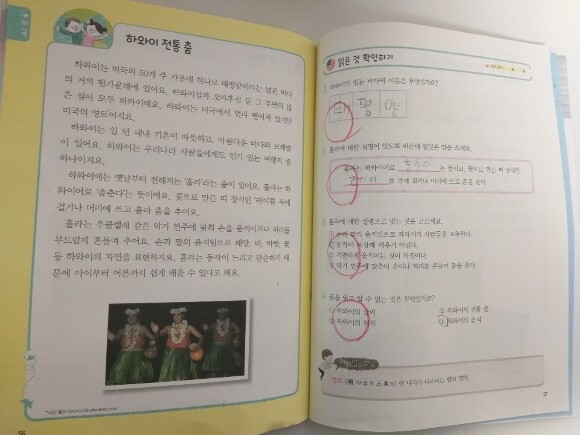 하와이 전통 춤
하와이는 미국의 50개 주 가운데 하나로 태평양이라는 넓은 바다
의 거의 한가운데에 있어요. 하와이섬과 오아후섬 등 그 주변의 많
은 섬이 모두 하와이예요. 하와이는 미국에서 멀리 떨어져 있지만
미국의 영토이지요.
하와이는 일 년 내내 기온이 따뜻하고, 아름다운 바다와 모래밭
이 있어요. 하와이는 우리나라 사람들에게도 인기 있는 여행지 중
하나이지요.
하와이에는 옛날부터 전해지는 '훌라'라는 춤이 있어요. 훌라는 하
와이어로 '춤춘다'는 뜻이에요. 꽃으로 만든 띠 장식인 '레이'를 목에
걸거나 머리에 쓰고 훌라 춤을 추어요.
훌라는 우쿨렐레 같은 악기 연주에 맞춰 손을 움직이거나 허리를
부드럽게 흔들며 추어요. 손과 팔의 움직임으로 태양, 비, 바람, 꽃
등 하와이의 자연을 표현하지요. 훌라는 동작이 느리고 단순하기 때
문에 아이부터 어른까지 쉽게 배울 수 있다고 해요.
읽은 것 확인하기
하와이가 있는 바다의 이름은 무엇인가요?
태 평 양
훌라에 대한 설명이 맞도록 빈칸에 알맞은 말을 쓰세요.
훌라는 하와이어로 는 뜻이고, 꽃으로 만든 띠 장식인
를 목에 걸거나 머리에 쓰고 춤을 춘다.
훌라에 대한 설명으로 맞는 것을 고르세요.
① 손과 팔의 움직임으로 하와이의 사람들을 표현한다.
② 동작이 복잡해 배우기 어렵다.
악기 연주에 맞추어 손이나 허리를 흔들며 춤을 춘다.
글을 읽고 알 수 없는 것은 무엇인가요?
① 하와이의 날씨
② 하와이의 전통 춤
③ 하와이의 위치
④ 하와이의 음식